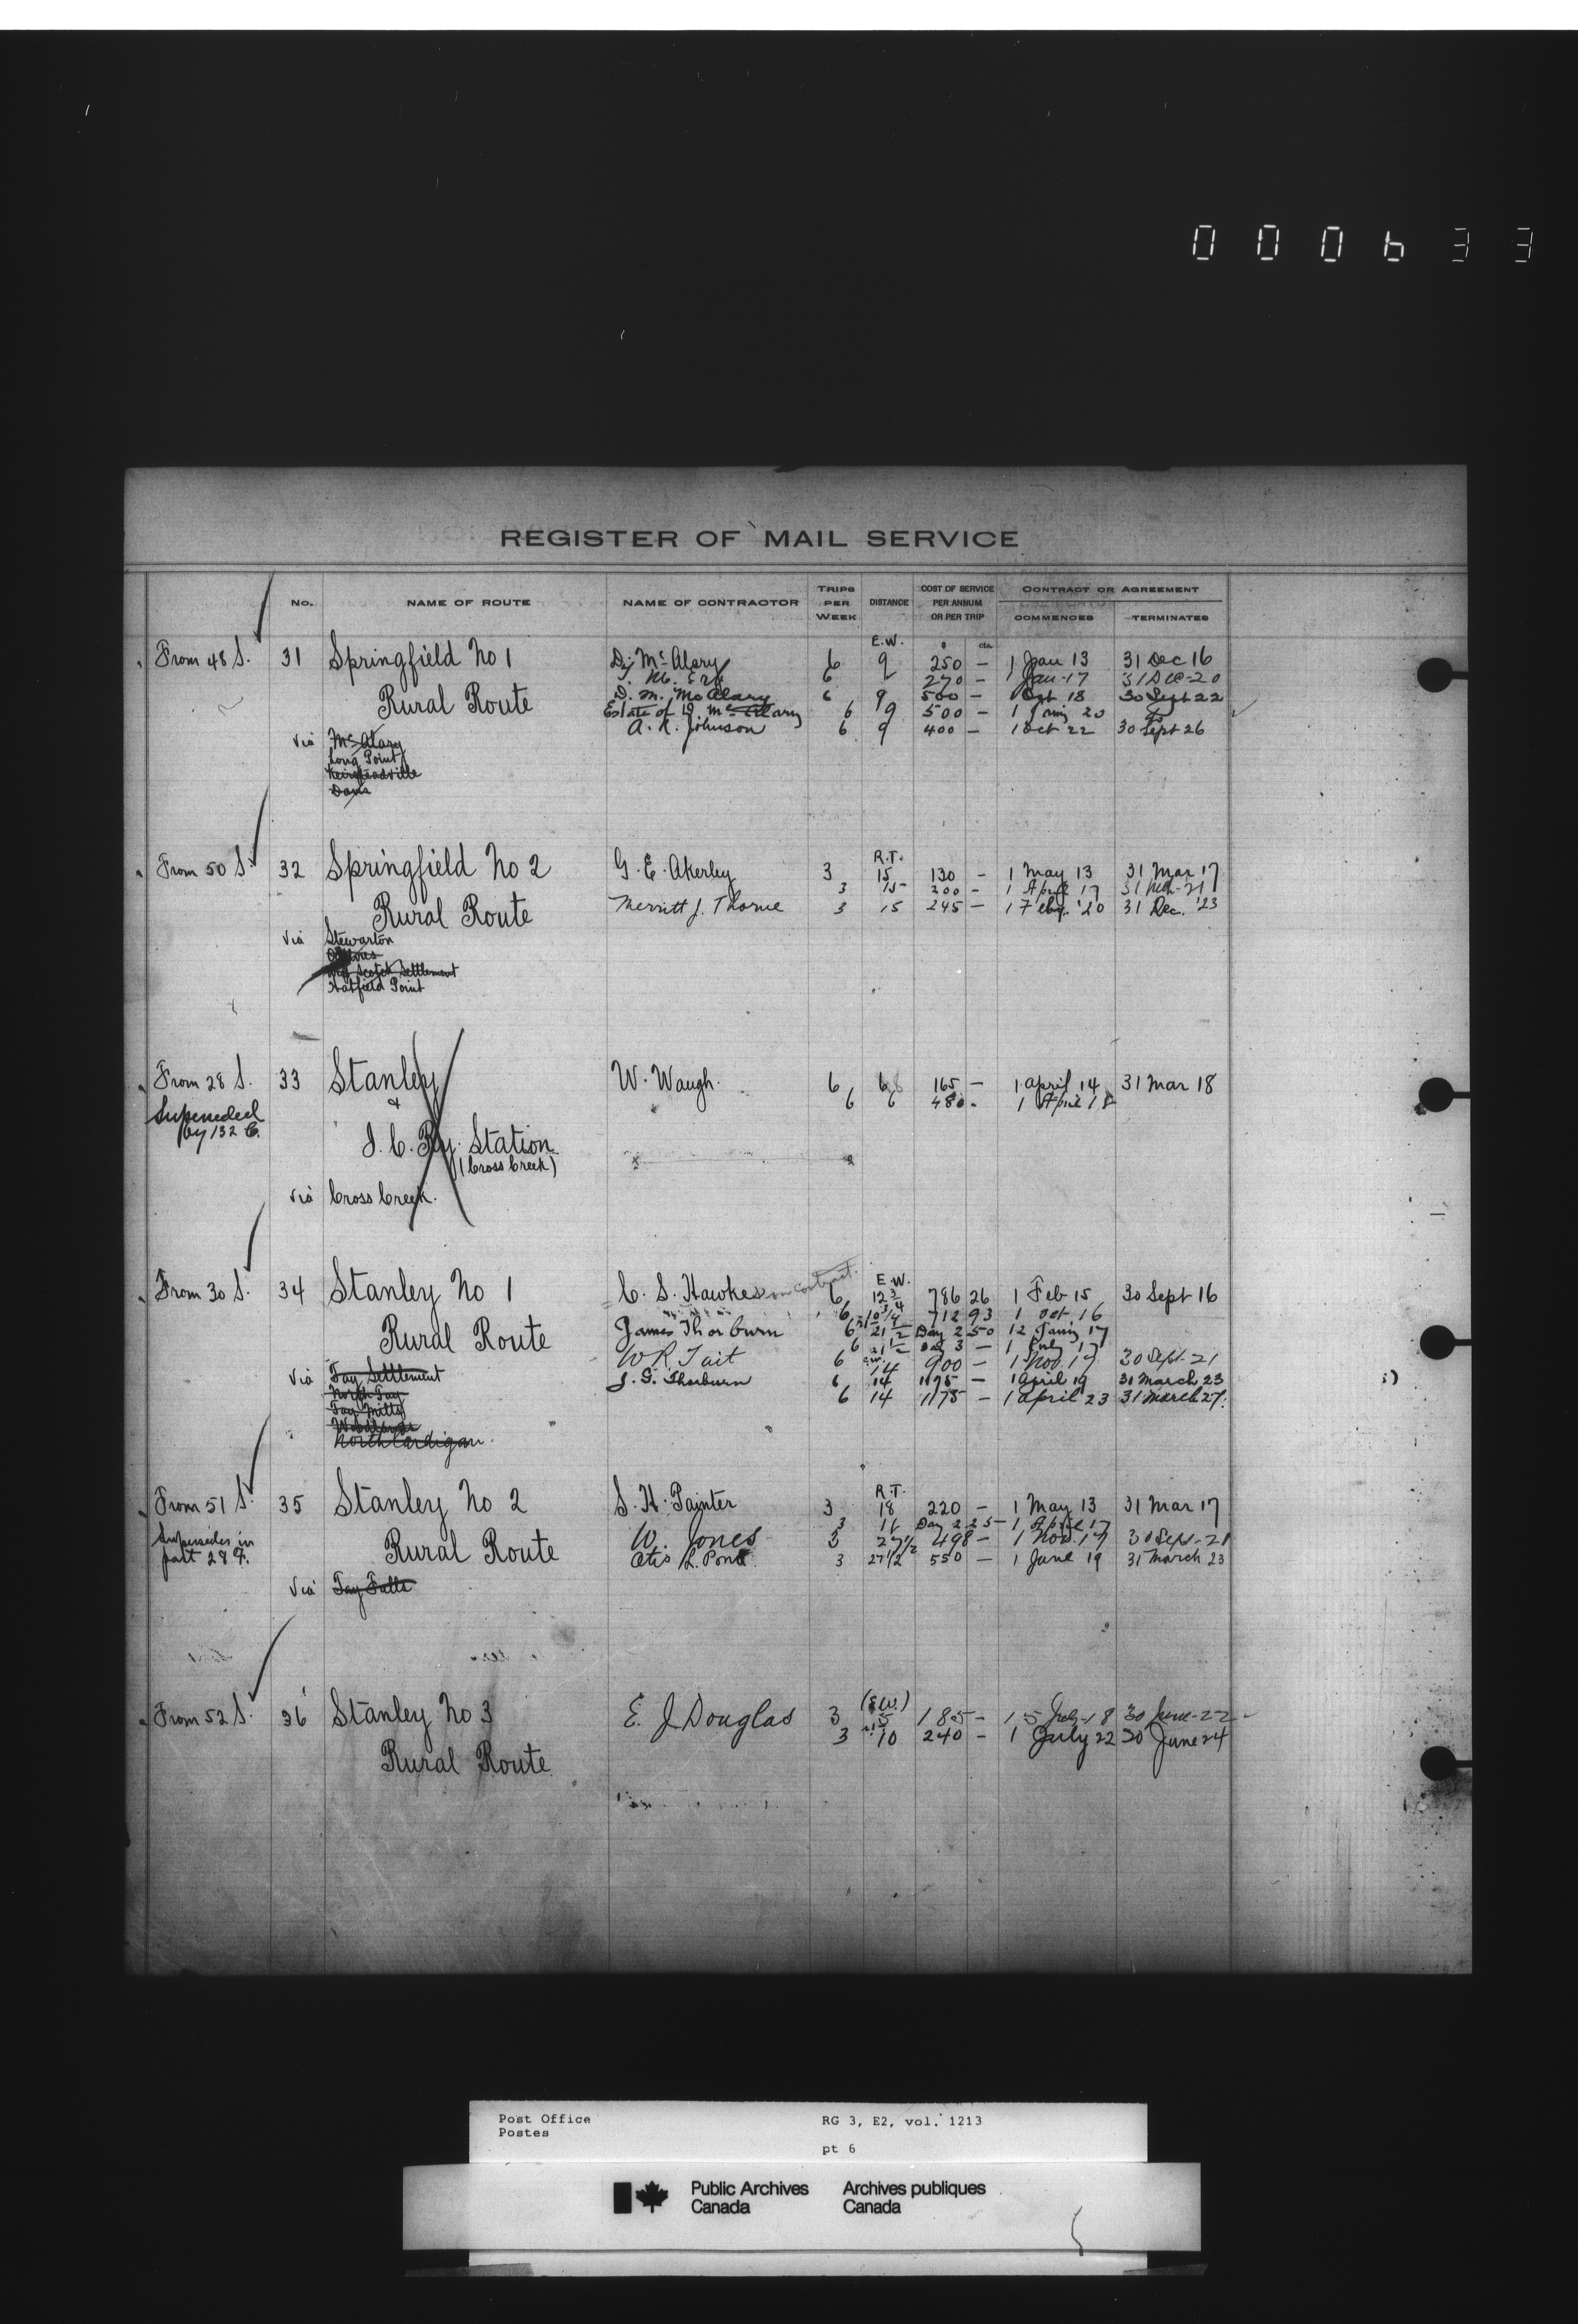 000633
REGISTER OF MAIL SERVICE
No. NAME OF ROUTE NAME OF CONTRACTOR TRIPS PER WEEK DISTANCE COST OF SERVICE PER ANNUM OR PER TRIP CONTRACT OR AGREEMENT COMMENCES TERMINATES
E.W. cts.
From 48 S. 31 Springfield No 1 D. McAlary 6 9 250 — 1 Jan 13 31 Dec 16
6 270 — 1 Jan-17 31 Dec-20
Rural Route D. M. McAlary 6 9 500 — 1 Oct 18 30 Sept 22
Estate of D. McAlary 6 9 500 — 1 20
A. R. Johnson 6 9 400 — 1 Oct 22 30 Sept 26
via McAlary
Long Point
Keirsteadville
Davis
R.T.
From 50 S. 32 Springfield No 2 G. E. Akerley 3 15 130 — 1 May 13 31 Mar 17
3 15 200 — 1 April 17 31 Mch-21
Rural Route Merritt J. Thorne 3 15 245 — 1 Feby. '20 31 Dec. '23
via Stewarton
Scotch Settlement
Hatfield Point
From 28 S. 33 Stanley W. Waugh. 6 6 165 — 1 april 14 31 Mar 18
& 6 6 480 - 1 April 18
Superseded
by 132 C.
I. C. Ry. Station
(Cross Creek)
via Cross Creek.
E.W.
From 30 S. 34 Stanley No 1 C. S. Hawkes on contract. 6 12 3/4 786 26 1 Feb 15 30 Sept 16
6 10 3/4 712 93 1 Oct 16
Rural Route James Thorburn 6 21 1/2 Day 2 50 12 17
6 21 1/2 Day 3 — 1 July 17
W R Tait 6 14 900 — 1 Nov. 17 30 Sept-21
via Tay Settlement J. G. Thorburn 6 14 1175 — 1 april 19 31 March 23
North Tay 6 14 1175 — 1 April 23 31 March 27.
Tay Mills
Woodlands
North Cardigan
R.T.
From 51 S. 35 Stanley No 2 S. H. Painter 3 18 220 — 1 May 13 31 Mar 17
3 Day 2 25 — 1 April 17
Supersedes in
part 28 F.
Rural Route W. Jones 3 27 1/2 498 — 1 Nov. 17 30 Sept-21
Otis L. Pond 3 27 1/2 550 — 1 June 19 31 March 23
via Tay Falls
From 52 S. 36 Stanley No 3 E. J Douglas 3 5 185 — 15 July-18 30 June-22
3 10 240 — 1 July 22 30 June 24
Rural Route
Post Office RG 3, E2, vol. 1213
Postes
pt 6
Public Archives Archives publiques
Canada Canada